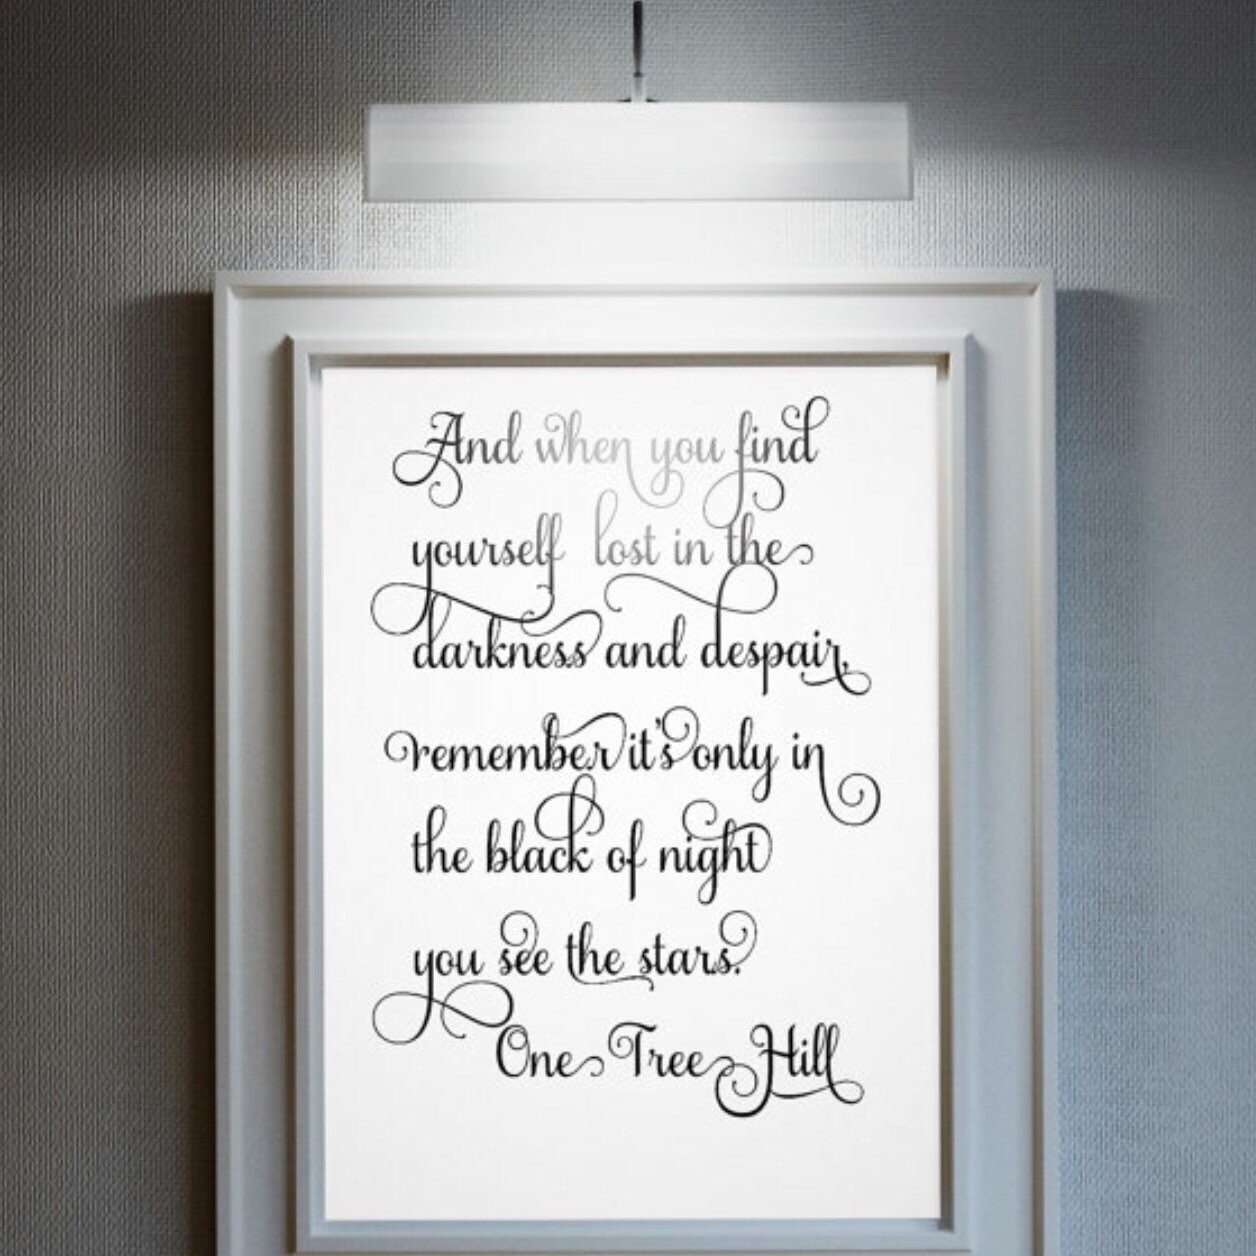 And when you find
yourself lost in the
darkness and despair,
remember it's only in
the black of night
you see the stars.
One Tree Hill